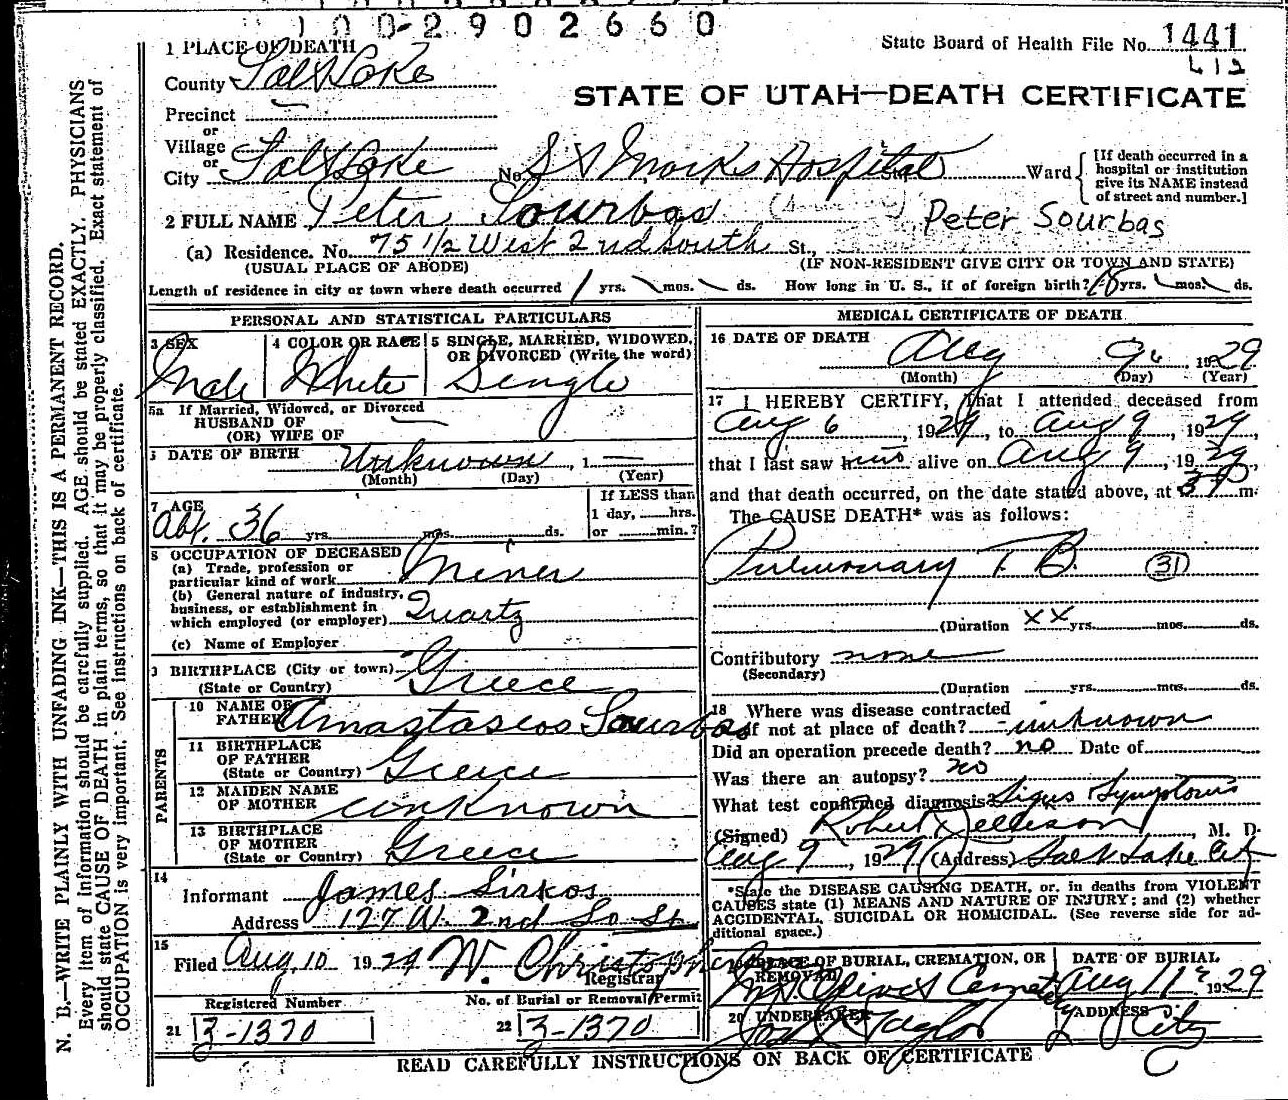 1002902660
State Board of Health File No. 1441
L12
STATE OF UTAH—DEATH CERTIFICATE
1 PLACE OF DEATH
County Salt Lake
Precinct —
or
Village
or
City Salt Lake No. St Marks Hospital Ward [If death occurred in a hospital or institution give its NAME instead of street and number.]
2 FULL NAME Peter Sourbas Peter Sourbas
(a) Residence. No. 75 1/2 West 2nd South St.,
(USUAL PLACE OF ABODE) (IF NON-RESIDENT GIVE CITY OR TOWN AND STATE)
Length of residence in city or town where death occurred 1 yrs. mos. ds. How long in U. S., if of foreign birth? 18 yrs. mos. ds.
PERSONAL AND STATISTICAL PARTICULARS
3 SEX 4 COLOR OR RACE 5 SINGLE, MARRIED, WIDOWED, OR DIVORCED (Write the word)
Male White Single
5a If Married, Widowed, or Divorced
HUSBAND OF
(OR) WIFE OF —
6 DATE OF BIRTH Unknown, 1 —
(Month) (Day) (Year)
7 AGE If LESS than
Abt. 36 yrs. mos. ds. 1 day, hrs.
or min.?
8 OCCUPATION OF DECEASED
(a) Trade, profession or
particular kind of work Miner
(b) General nature of industry,
business, or establishment in
which employed (or employer) Quartz
(c) Name of Employer
9 BIRTHPLACE (City or town)
(State or Country) Greece
PARENTS
10 NAME OF
FATHER Anastaseos Sourbas
11 BIRTHPLACE
OF FATHER
(State or Country) Greece
12 MAIDEN NAME
OF MOTHER unknown
13 BIRTHPLACE
OF MOTHER
(State or Country) Greece
14
Informant James Sirkos
Address 127 W. 2nd So St.
15
Filed Aug 10 1929 W. Christopher
Registrar
Registered Number No. of Burial or Removal Permit
21 3-1370 22 3-1370
MEDICAL CERTIFICATE OF DEATH
16 DATE OF DEATH
Aug 9 1929
(Month) (Day) (Year)
17 I HEREBY CERTIFY, That I attended deceased from
Aug 6, 1929, to Aug 9, 1929,
that I last saw him alive on Aug 9, 1929,
and that death occurred, on the date stated above, at m.
The CAUSE DEATH* was as follows:
Pulmonary T B. 31
(Duration xx yrs. mos. ds.
Contributory none
(Secondary)
(Duration yrs. mos. ds.
18 Where was disease contracted
if not at place of death? unknown
Did an operation precede death? no Date of
Was there an autopsy? no
What test confirmed diagnosis? Signs Symptoms
(Signed) Robert Jellison, M. D.
Aug 9, 1929 (Address) Salt Lake City
*State the DISEASE CAUSING DEATH, or, in deaths from VIOLENT
CAUSES state (1) MEANS AND NATURE OF INJURY; and (2) whether
ACCIDENTAL, SUICIDAL OR HOMICIDAL. (See reverse side for ad-
ditional space.)
19 PLACE OF BURIAL, CREMATION, OR REMOVAL DATE OF BURIAL
Mt. Olivet Cemet Aug 11 1929
20 UNDERTAKER ADDRESS
Taylor City
READ CAREFULLY INSTRUCTIONS ON BACK OF CERTIFICATE
N. B.—WRITE PLAINLY WITH UNFADING INK—THIS IS A PERMANENT RECORD.
Every item of information should be carefully supplied. AGE should be stated EXACTLY. PHYSICIANS
should state CAUSE OF DEATH in plain terms, so that it may be properly classified. Exact statement of
OCCUPATION is very important. See instructions on back of certificate.